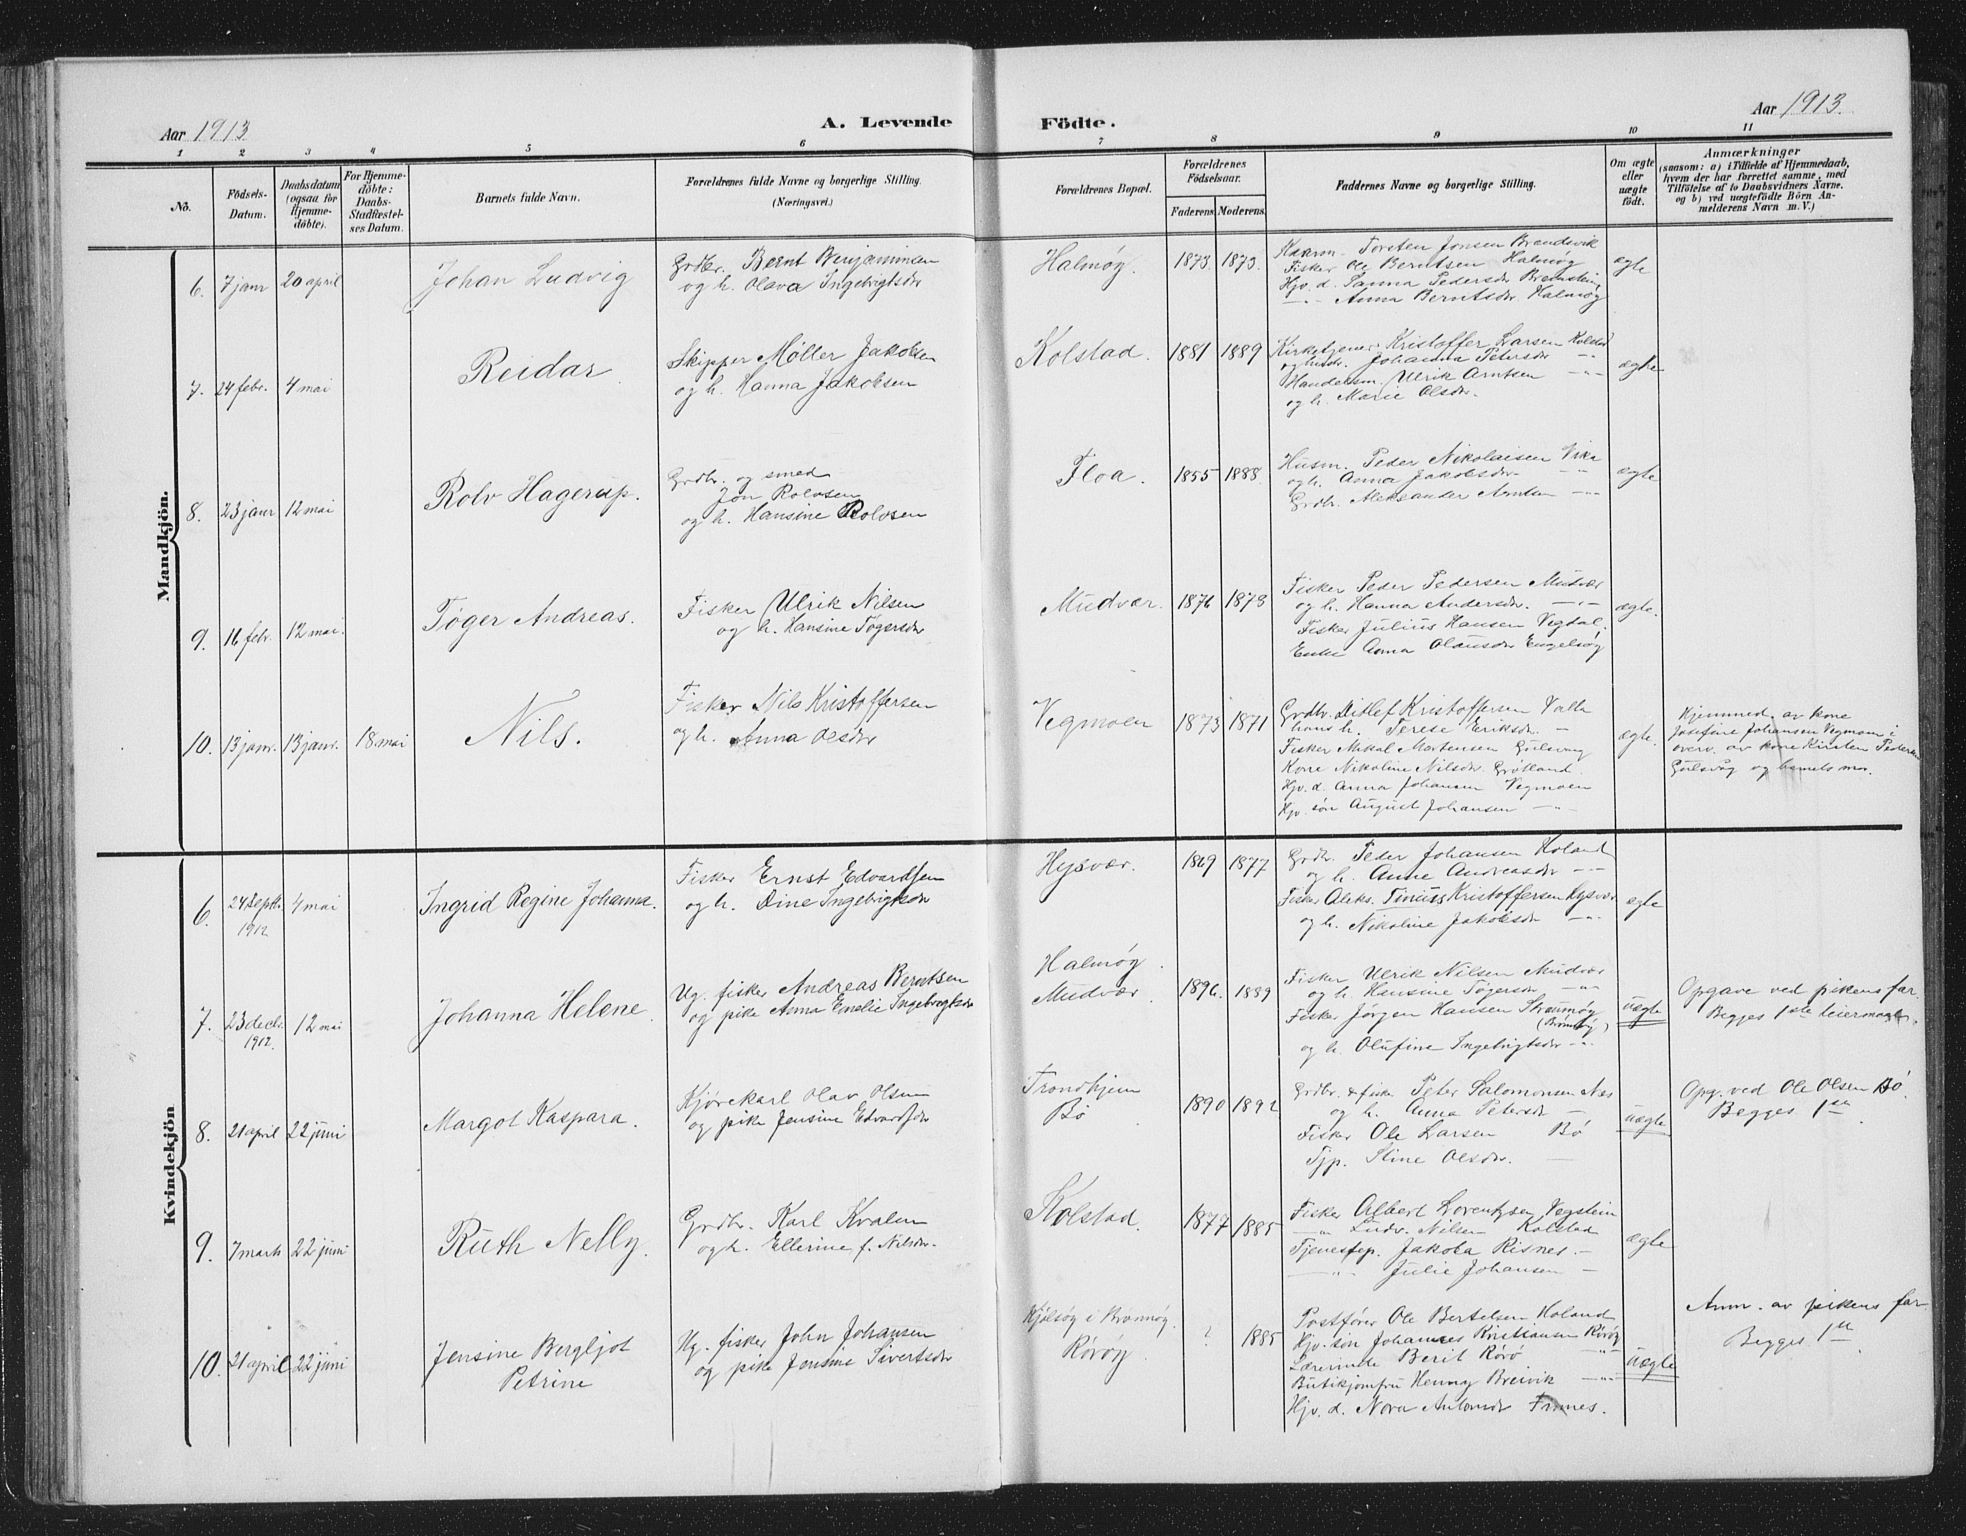 Aar 1913
A. Levende Födte.
Aar 1913.
1 2 3 4 5 6 7 8 9 10 11
No.
Födsels-
Datum.
Daabsdatum
(ogsaa for
Hjemme-
döbte).
For Hjemme-
döbte:
Daabs-
Stadfæstel-
ses Datum.
Barnets fulde Navn.
Forældrenes fulde Navne og borgerlige Stilling.
(Næringsvei.)
Forældrenes Bopæl.
Forældrenes
Födselsaar.
Faderens. Moderens.
Faddernes Navne og borgerlige Stilling.
Om ægte
eller
uægte
födt.
Anmærkninger
(saasom: a) i Tilfælde af Hjemmedaab,
hvem der har forrettet samme, med
Tilföielse af to Daabsvidners Navne.
og b) ved uægtefödte Börn An-
melderens Navn m. V.)
Mandkjön.
6. 7 janr 20 april
Johan Ludvig
Grdbr. Bernt Benjaminsen
og h. Olava Ingebrigtsdr
Halmøy. 1873. 1873.
Torsten Jonsen Brandsvik
Fisker Ole Berntsen Halmøy
Hjv. d. Sanna Pedersdr
–"– Anna Berntsdr Halmøy
ægte
7. 24 febr. 4 mai
Reidar
Skipper Møller Jakobsen
og h. Hanna Jakobsen
Kolstad. 1881 1889
Kirketjener Kristoffer Larsen Kolstad
og hustr. Johanna Petersdr –"–
Handelsm. Ulrik Arntsen –"–
og h. Marie Olsdr.
ægte
8. 23 janr 12 mai
Rolv Hagerup.
Grdbr. og smed
Jon Rolvsen
og h. Hansine Rolvsen
Floa. 1855 1888.
Husm. Peder Nikolaisen Vika
og h. Anna Jakobsdr –"–
Grdbr. Aleksander Arntsen –"–
ægte
9. 16 febr. 12 mai.
Tøger Andreas.
Fisker Ulrik Nilsen
og h. Hansine Tøgersdr
Mudvær. 1876 1873
Fisker Peder Pedersen Mudvær
og h. Hanna Andersdr. –"–
Fisker Julius Hansen Vegdal.
Enke Anna Olausdr Engelsøy
ægte.
10. 13 janr. 13 janr. 18 mai
Nils.
Fisker Nils Kristoffersen
og h. Anna Olsdr
Vegmoen 1873 1871
Grdbr. Ditlef Kristoffersen Valla
hans h. Terese Eriksdr. –
Fisker Nikal Mortensen Gulsvåg
Kone Nikoline Nilsdr. Grötland.
Hjv. d. Anna Johansen Vegmoen
Hjv. søn August Johansen –"–
ægte.
Hjemmed. av kone
Josefine Johansen Vegmoen i
overv. av kone Kirsten Pedersen
Gulsvåg og barnets mor.
Kvindekjön
6 24 septbr. 4 mai
1912
Ingrid Regine Johanna.
Fisker Ernst Edvardsen
og h. Dine Ingebrigtsdr
Hysvær. 1869 1877
Grdbr. Peder Johansen Holand
og h. Anne Andreasdr –"–
Fisker Aleks. Tinius Kristoffersen Hysvær
og h. Nikoline Jakobsdr –"–
ægte
7. 23 decbr. 12 mai
1912.
Johanna Helene.
Ug. fisker Andreas Berntsen
og pike Anna Emelie Ingebrigtsdr
Halmøy.
Mudvær. 1896. 1889
Fisker Ulrik Nilsen Mudvær
og h. Hansine Tøgersdr –"–
Fisker Jørgen Hansen Straumøy
(Brønnøy)
og h. Olufine Ingebrigtsdr –"–
uægte
Opgave ved pikens far.
Begges 1ste leiermaal.
8. 21 april 22 juni
Margot Kaspara.
Kjørekarl Olav Olsen
og pike Jensine Edvardsdr
Trondhjem
Bø 1890 1892
Grdbr. & fisk. Peter Salomonsen Næs
og h. Anna Petersdr –
Fisker Ole Larsen Bø
Tjp. Stine Olsdr. –
uægte
Opg. ved Ole Olsen Bø.
Begges 1ste
9. 7 marts 22 juni
Ruth Nelly.
Grdbr. Karl Kvalen
og h. Ellerine f. Nilsdr.
Kolstad. 1877 1885
Fisker Albert Lorentzen Vegstein
–"– Ludv. Nilsen Kolstad
Tjenestep. Jakoba Risnes. –
–"– Julie Johansen –
ægte
10. 21 april 22 juni
Jensine Bergljot
Petrine
Ug. fisker John Johansen
og pike Jensine Sivertsdr
Kjölsøy i Brønnøy.
Rörøy. ? 1885
Postfører Ole Bertelsen Holand
Hjv. søn Johannes Kristiansen Rörøy
Lærerinde Berit Rörø –"–
Butikjomfru Henny Breivik –"–
Hjv. d. Nora Antonsdr Finnes.
uægte
Anm. av pikens far
Begges 1ste.